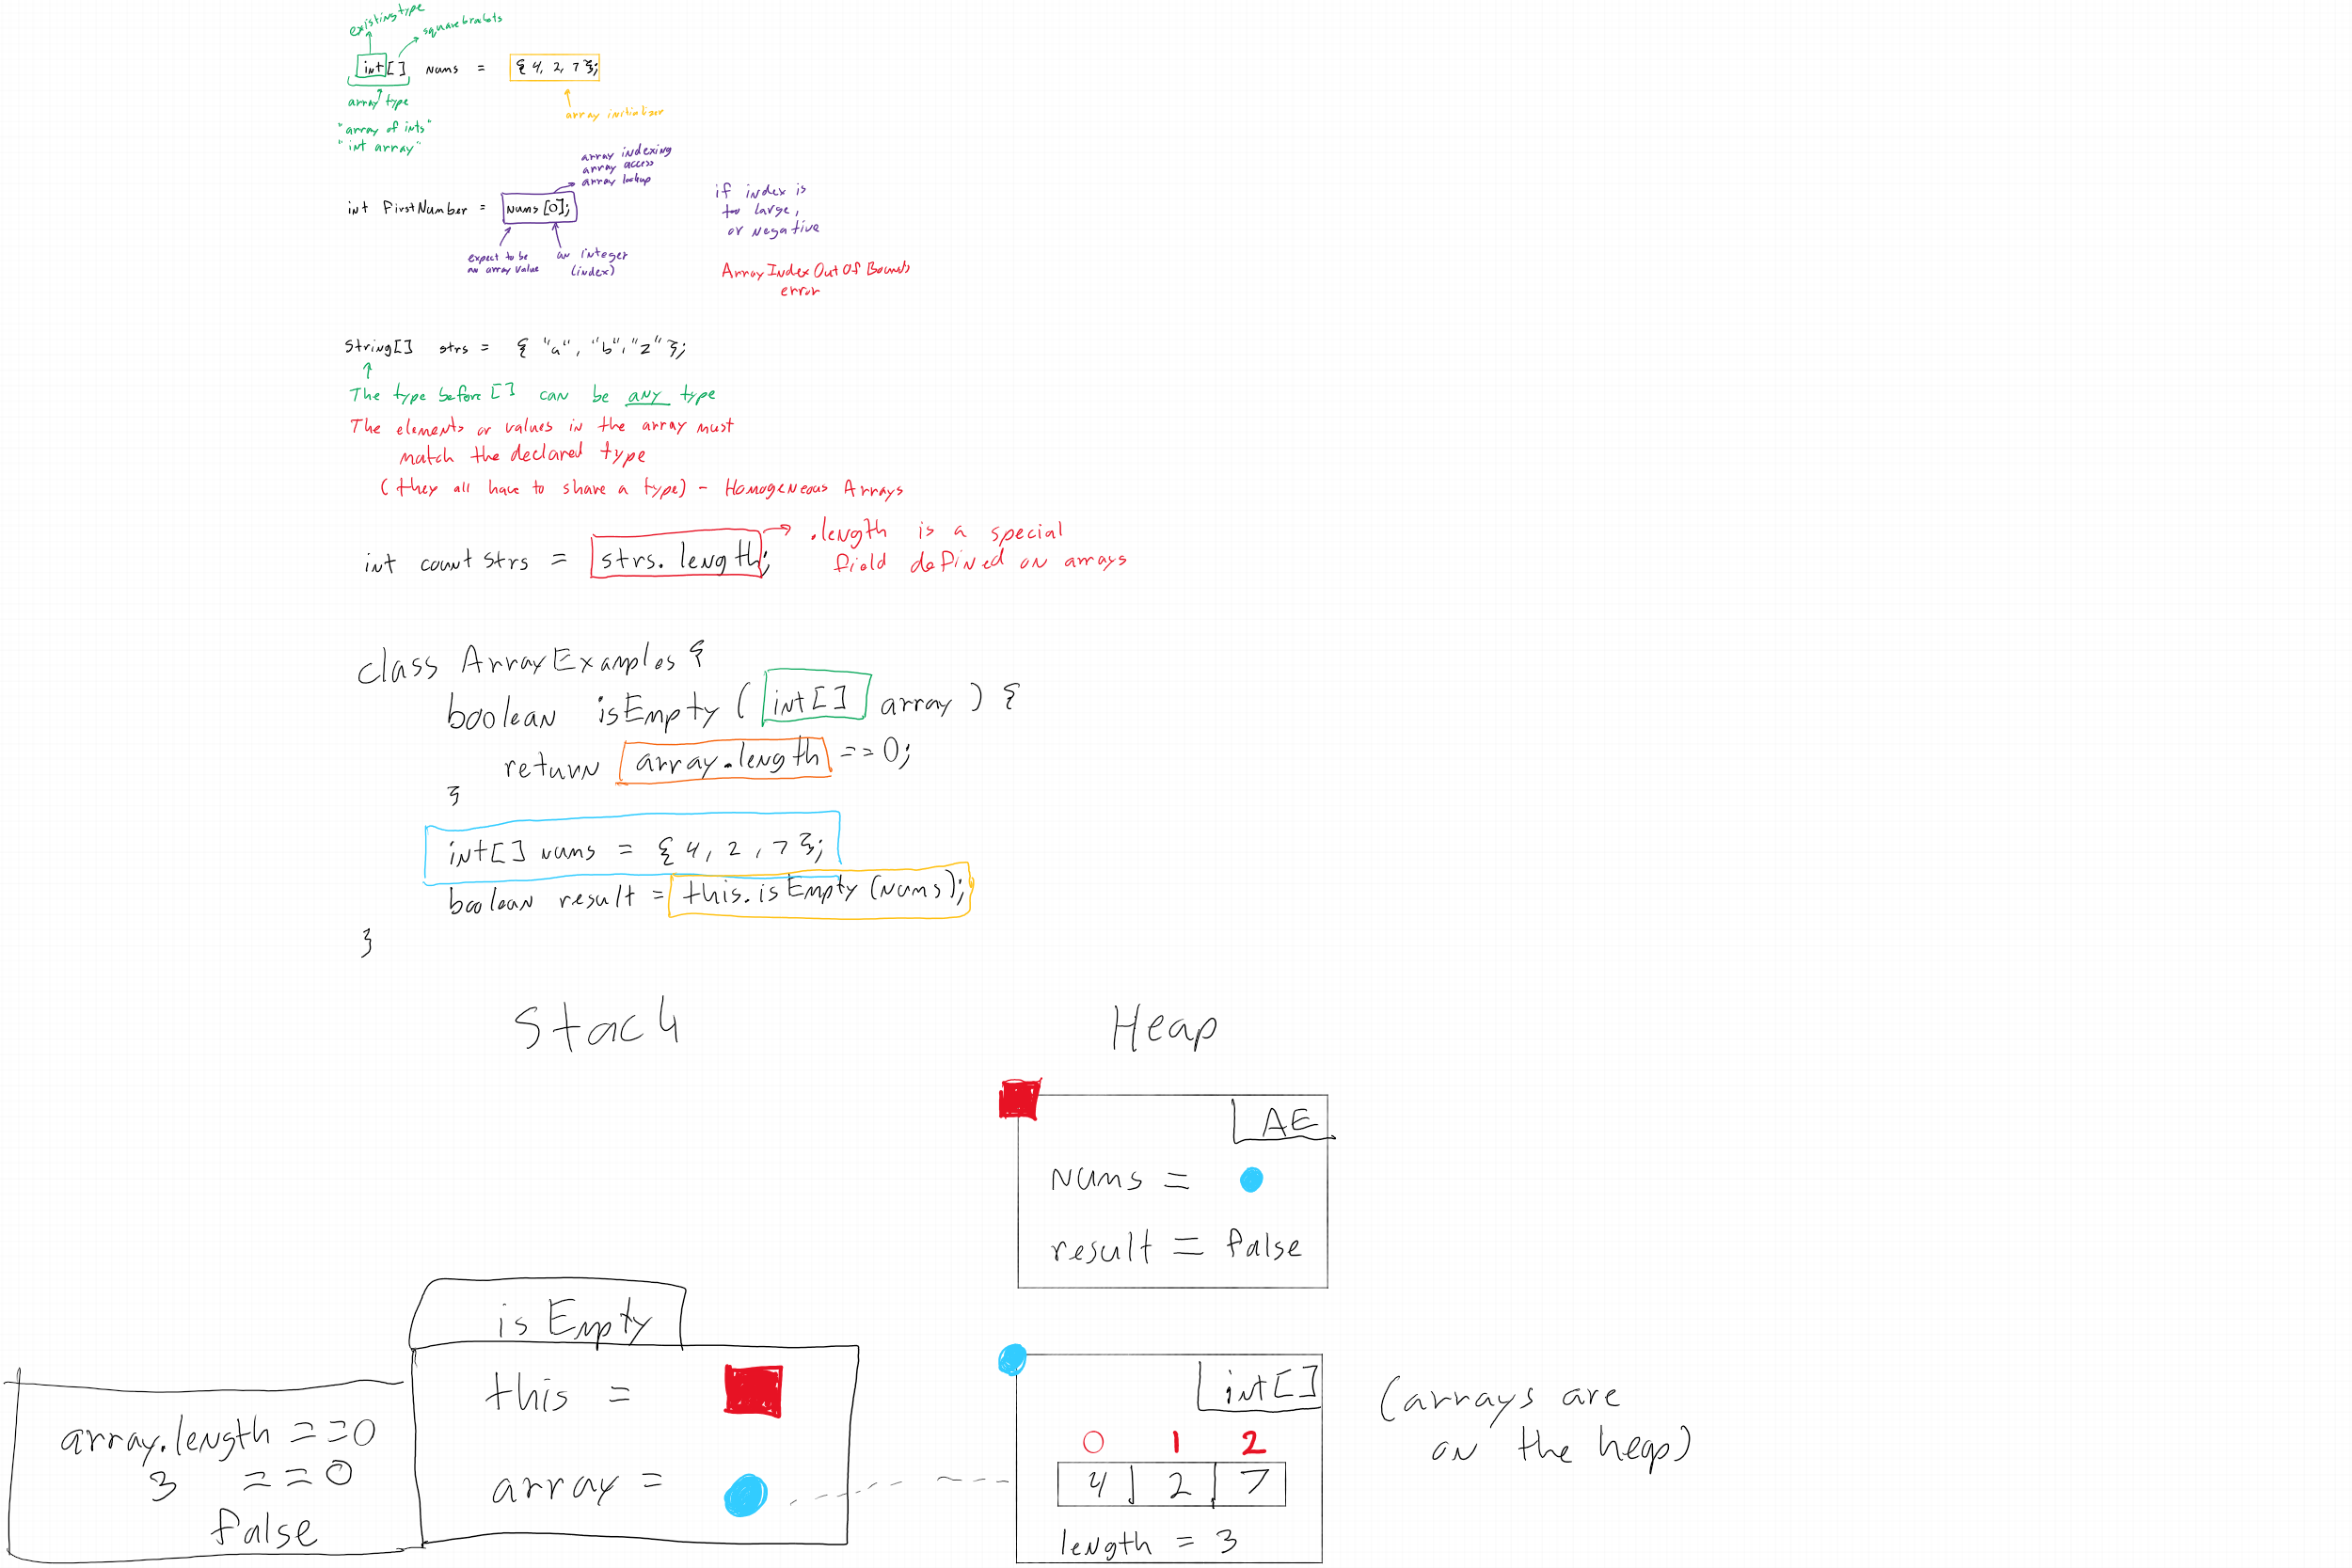 existing type
square brackets
int[] nums = { 4, 2, 7 };
array type
array initializer
"array of ints"
"int array"
array indexing
array access
array lookup
int firstNumber = nums[0];
if index is
too large,
or negative
expect to be
an array value
an integer
(index)
ArrayIndexOutOfBounds
error
String[] strs = { "a", "b", "z" };
The type before [] can be any type
The elements or values in the array must
match the declared type
(they all have to share a type) - Homogeneous Arrays
int countStrs = strs.length;
.length is a special
field defined on arrays
class ArrayExamples {
boolean isEmpty ( int[] array ) {
return array.length == 0;
}
int[] nums = { 4, 2, 7 };
boolean result = this.isEmpty(nums);
}
Stack
Heap
AE
nums =
result = false
isEmpty
this =
array =
array.length == 0
3 == 0
false
int[]
0 1 2
4 2 7
length = 3
(arrays are
on the heap)